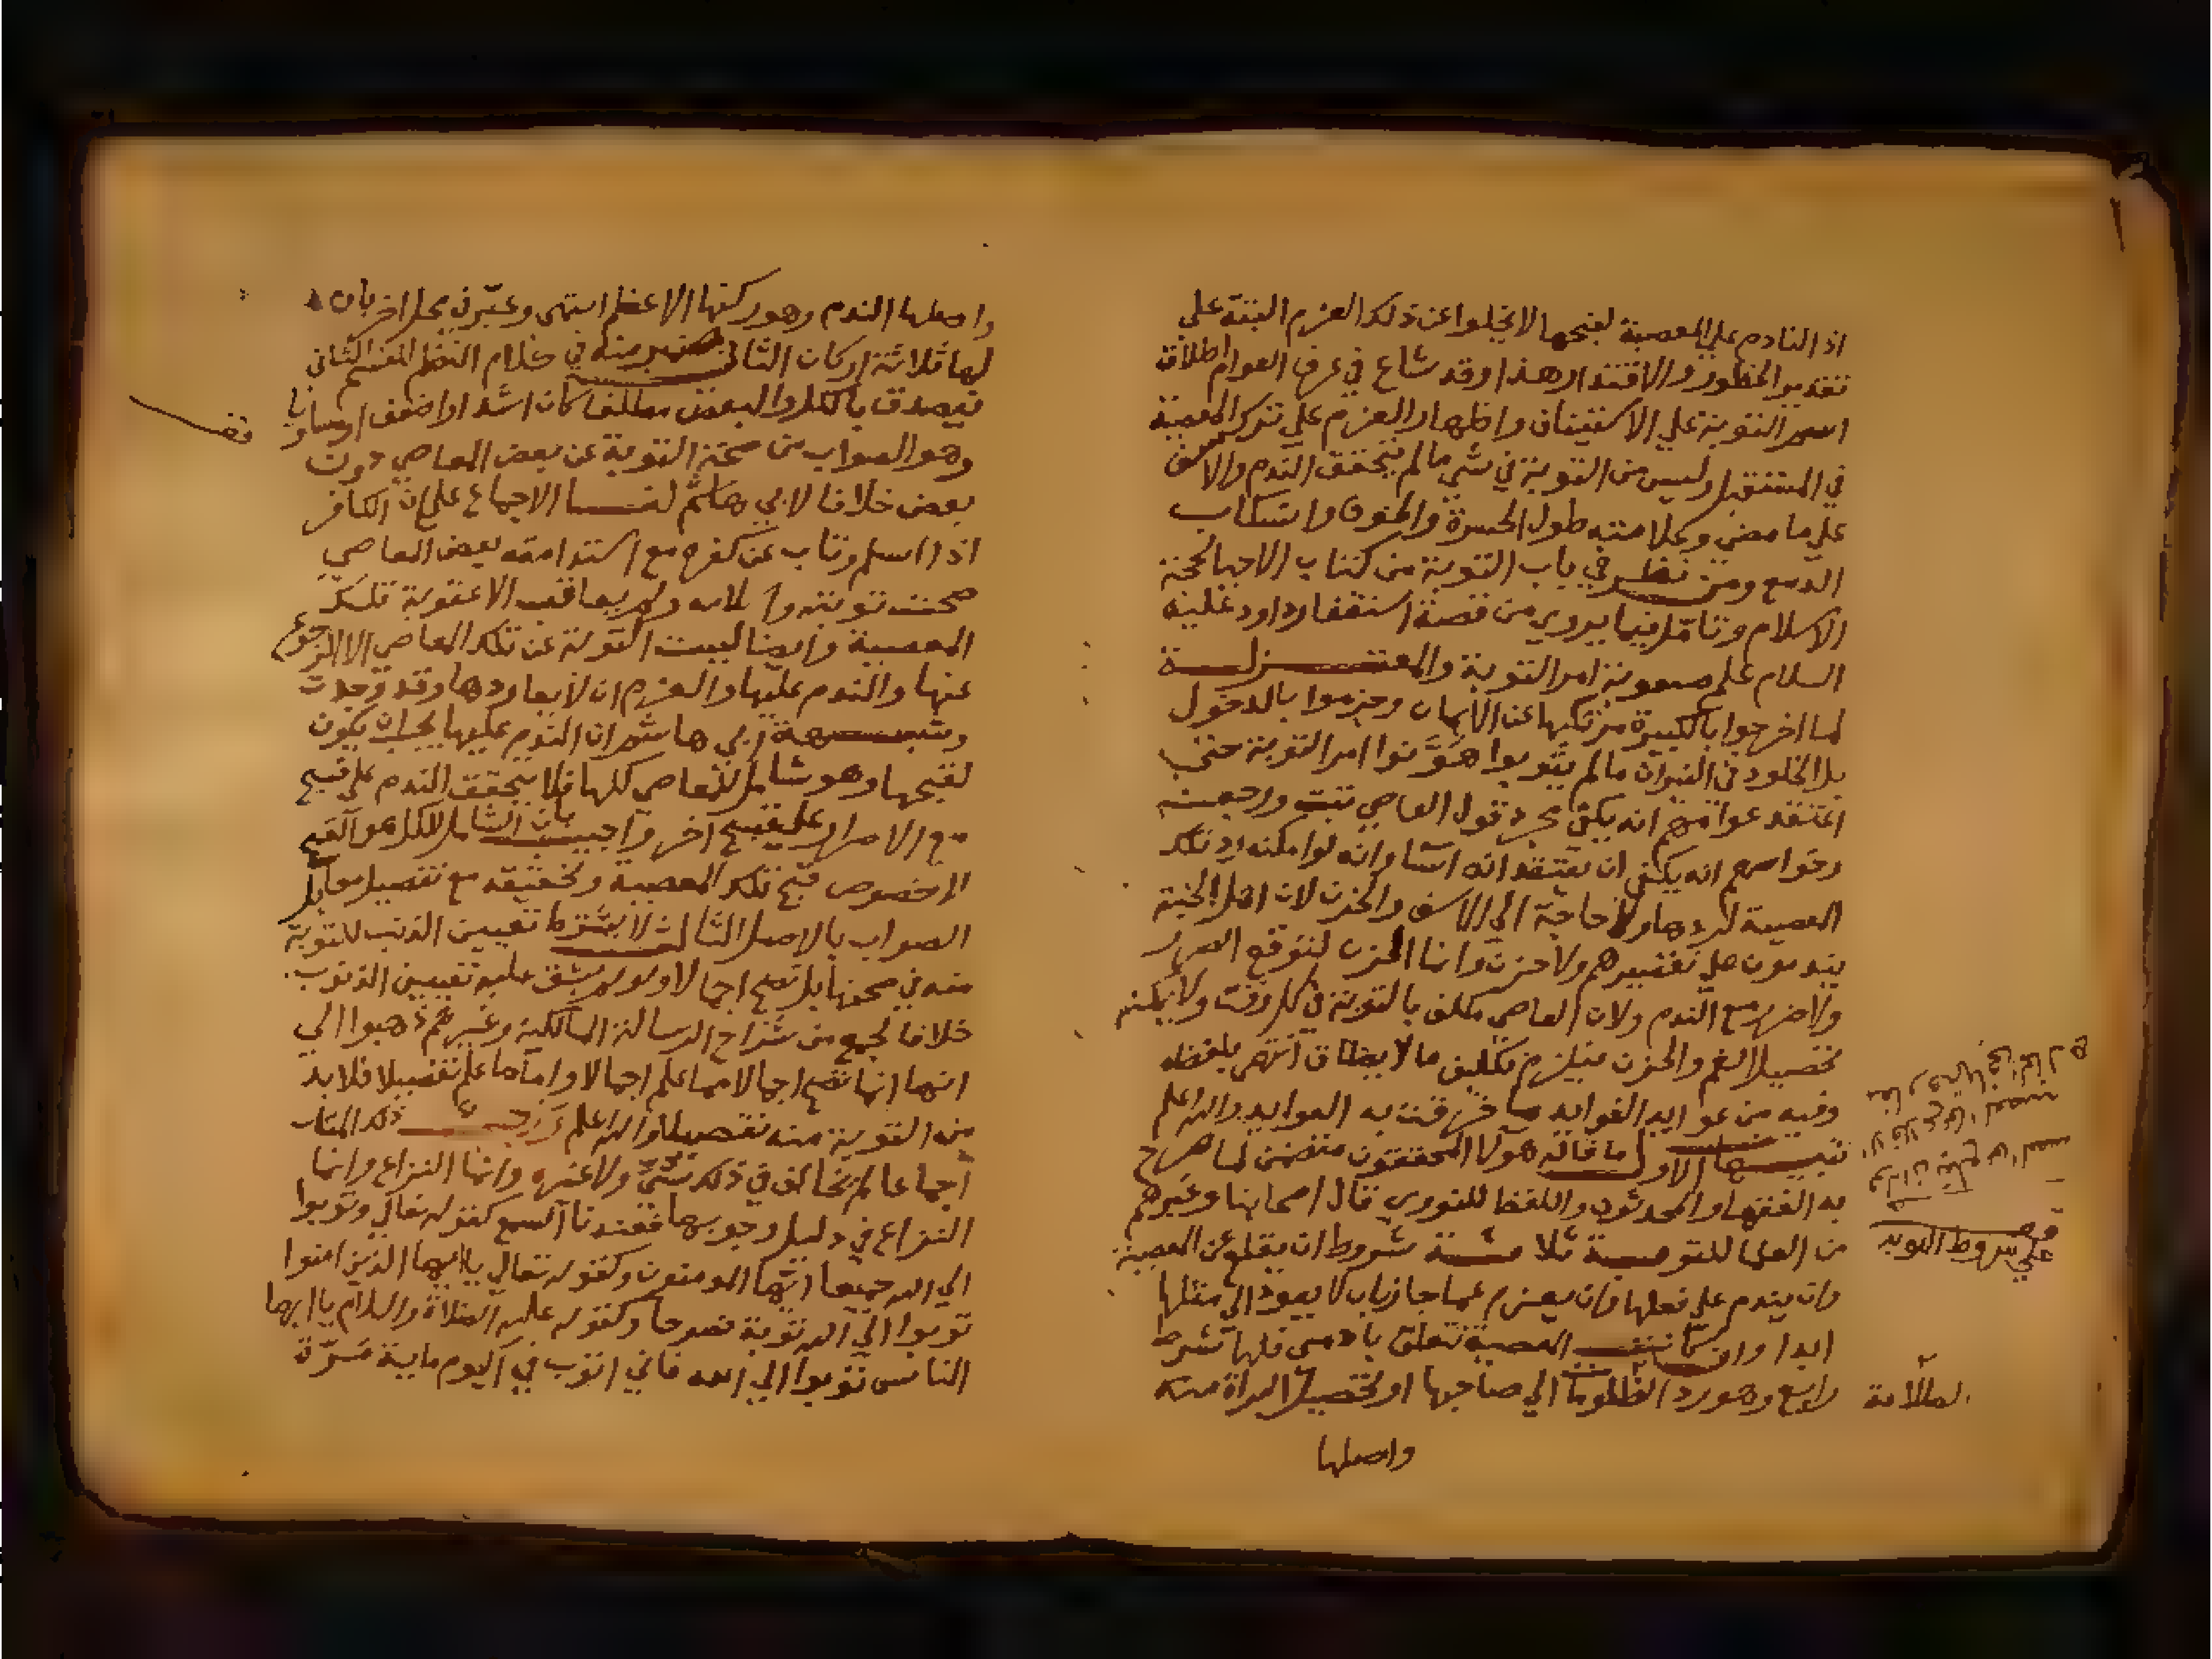 اذ النادم علي المعصية لقبحها لا يخلوا عن ذلك العزم البتة علي
تقدير الخطور والاقتدار هذا وقد شاع في عرف العوام اطلاق
اسم التوبة علي الاستيتان واظهار العزم علي ترك المعصية
في المستقبل وليس من التوبة في شي ما لم يتحقق الندم والاسف
علي ما مضي وعلامته طول الحسرة والحزن وانسكاب
الدمع ومن نظر في باب التوبة من كتاب الاحيا لحجة
الاسلام وتامل فيما يروي من قصة استغفار داود عليه
السلام علم صعوبة امر التوبة والمعتزلة
لما اخرجوا بالكبيرة مرتكبها عن الايمان وجزموا بالدخول
بل الخلود في النيران ما لم يتوبوا هونوا امر التوبة حتي
اعتقد عوامهم انه يكفي مجرد قول العاصي تبت ورجعت
وخواصهم انه يكفي ان يعتقد انه اسا وانه لو امكنه رد تلك
المعصية لردها ولا حاجة الي الاسف والحزن لان اهل الجنة
يندمون علي تقصيرهم ولا حزن وانما الحزن لتوقع الضرر
ولا ضرر مع الندم ولان العاصي مكلف بالتوبة في كل وقت ولا يمكنه
تحصيل الغم والحزن فيلزم تكليف ما لا يطاق انتهي بلفظه
وفيه من عوايد الفوايد ما خرقت به العوايد والله اعلم
تنبيهات الاول ما قاله هولا المحققون متضمن لما صرح
به الفقها والمحدثون واللفظ للنووي قال اصحابنا وغيرهم
من العلما للتوبة ثلاثة شروط ان يقلع عن المعصية
وان يندم علي فعلها وان يعزم عزما جازما بان لا يعود الي مثلها
ابدا وان كانت المعصية تتعلق بادمي فلها شرط
رابع وهو رد الظلامة الي صاحبها او تحصيل البراة منه
واصلها
علي شروط التوبة
الظلامة
واصلها الندم وهو ركنها الاعظم انتهي وعبر في محل اخر بان
لها ثلاثة اركان الثاني في كلام النظم
فيصدق بالكل والبعض مطلقا كان اشد او اضعف او مساويا
وهو الصواب من صحة التوبة عن بعض المعاصي دون
بعض خلافا لابي هاشم لنا الاجماع علي ان الكافر
اذا اسلم وتاب عن كفره مع استدامته بعض المعاصي
صحت توبته واسلامه ولم يعاقب الا عقوبة تلك
المعصية وايضا ليست التوبة عن تلك المعاصي الا الرجوع
عنها والندم عليها والعزم ان لا يعاودها وقد وجدت
وشبهة ابي هاشم ان الندم عليها يجب ان يكون
لقبحها وهو شامل للمعاصي كلها فلا يتحقق الندم علي قبيح
مع الاصرار علي قبيح آخر واجيب بان الشامل للكل هو القبح
لا خصوص قبح تلك المعصية وتحقيقه مع تفصيل مقابل
الصواب بالاصل الثالث لا يشترط تعيين الذنب للتوبة
منه في صحتها بل تصح اجمالا ولو لم يشق عليه تعيين الذنوب
خلافا لجمع من شراح الرسالة المالكية وغيرهم ذهبوا الي
انها انما تصح اجمالا مما علم اجمالا واما ما علم تفصيلا فلا بد
من التوبة منه تفصيلا والله اعلم ذكر المتاب
اجماعا لم يخالف في ذلك سني ولا غيره وانما النزاع وانما
النزاع في دليل وجوبها فعندنا السمع كقوله تعالي وتوبوا
الي الله جميعا ايها المومنون وكقوله تعالي يا ايها الذين امنوا
توبوا الي الله توبة نصوحا وكقوله عليه الصلاة والسلام يا ايها
الناس توبوا الي الله فاني اتوب في اليوم ماية مرة